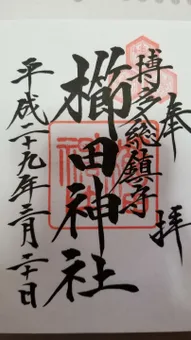 奉拝
博多総鎮守
櫛田神社
平成二十九年三月二十日